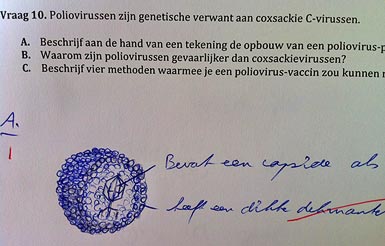 Vraag 10. Poliovirussen zijn genetische verwant aan coxsackie C-virussen.
A. Beschrijf aan de hand van een tekening de opbouw van een poliovirus-p
B. Waarom zijn poliovirussen gevaarlijker dan coxsackievirussen?
C. Beschrijf vier methoden waarmee je een poliovirus-vaccin zou kunnen
A.
1
Bevat een capside als
heeft een dikke